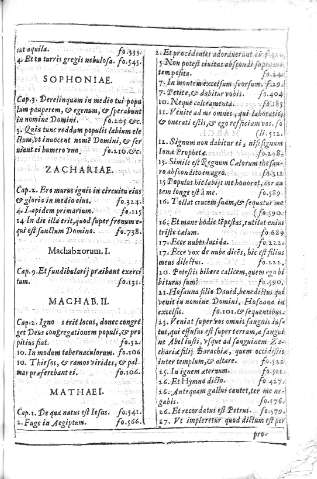 cut aquila. fo.333.
4. Et tu turris gregis nebulosa. fo.545.
SOPHONIAE.
Cap.3. Derelinquam in medio tui popu
lum pauperem, & egenum, & sperabunt
in nomine Domini. fo.205 &c.
3. Quia tunc reddam populis labium ele
ctum, vt inuocent nomē Domini, & ser
uiant ei humero vno. fo.210.&c.
ZACHARIAE.
Cap.2. Ero murus ignis in circuitu eius
& gloria in medio eius. fo.324.
4. Lapidem primarium. fo.115
14. In die illa erit, quod super frenum e-
qui est sanctum Domino. fo.738.
Machabæorum. I.
Cap.9. Et fundibularij praeibant exerci
tum. fo.131.
MACHAB. II.
Cap.2. Igno erit locus, donec congre
get Deus congregationem populi, & pro
pitius fiat. fo.32.
10. In modum tabernaculorum. fo.106
10. Thirsos, & ramos virides, & pal
mas praeferebant ei. fo.106.
MATHAEI.
Cap.1. De qua natus est Iesus. fo.541.
2. Fuge in Aegiptum. fo.566.
2. Et procidentes adorauerunt
5. Non potest ciuitas abscondi supra mō
tem posita. fo.24.
7. In montem excelsum seorsum. fo.291.
7. Petite, & dabitur vobis. fo.404
10. Neque calceamenta. fo.183
11. Venite ad me omnes, qui laboratis,
& onerati estis, & ego reficiam vos. fo
li.512.
12. Signum non dabitur ei, nisi signum
Ionæ Prophetæ. fo.298.
13. Simile est Regnum Cælorum thesau-
ro abscondito in agro. fo.312
15 Populus hic labijs me honorat, cor au
tem longe est à me. fo.589
16. Tollat crucem suam, & sequatur me
fo.590.
16. Et mane hodie tēpestas, rutilat enim
triste cælum. fo.629
17. Ecce nubes lucida. fo.222.
17. Ecce vox de nube dicēs, hic est filius
meus dilectus. fo.222.
20. Potestis bibere calicem, quem ego bi
biturus sum? fo.590.
21. Hosanna filio Dauid, benedictus qui
venit in nomine Domini, Hosanna in
excelsis. fo.101. & sequentibus.
23. Veniat super vos omnis sanguis ius-
tus, qui effusus est super terram, à sangui
ne Abel iusti, vsque ad sanguinem Za-
chariæ filij Barachiæ, quem occidistis
inter templum, & altare. fo.322.
25. In ignem æternum. fo.521.
26. Et Hymno dicto. fo.427.
26. Antequam gallus cantet, ter me ne-
gabis. fo.576.
26. Et recordatus est Petrus. fo.579.
27. Vt impleretur quod dictum est per
pro-